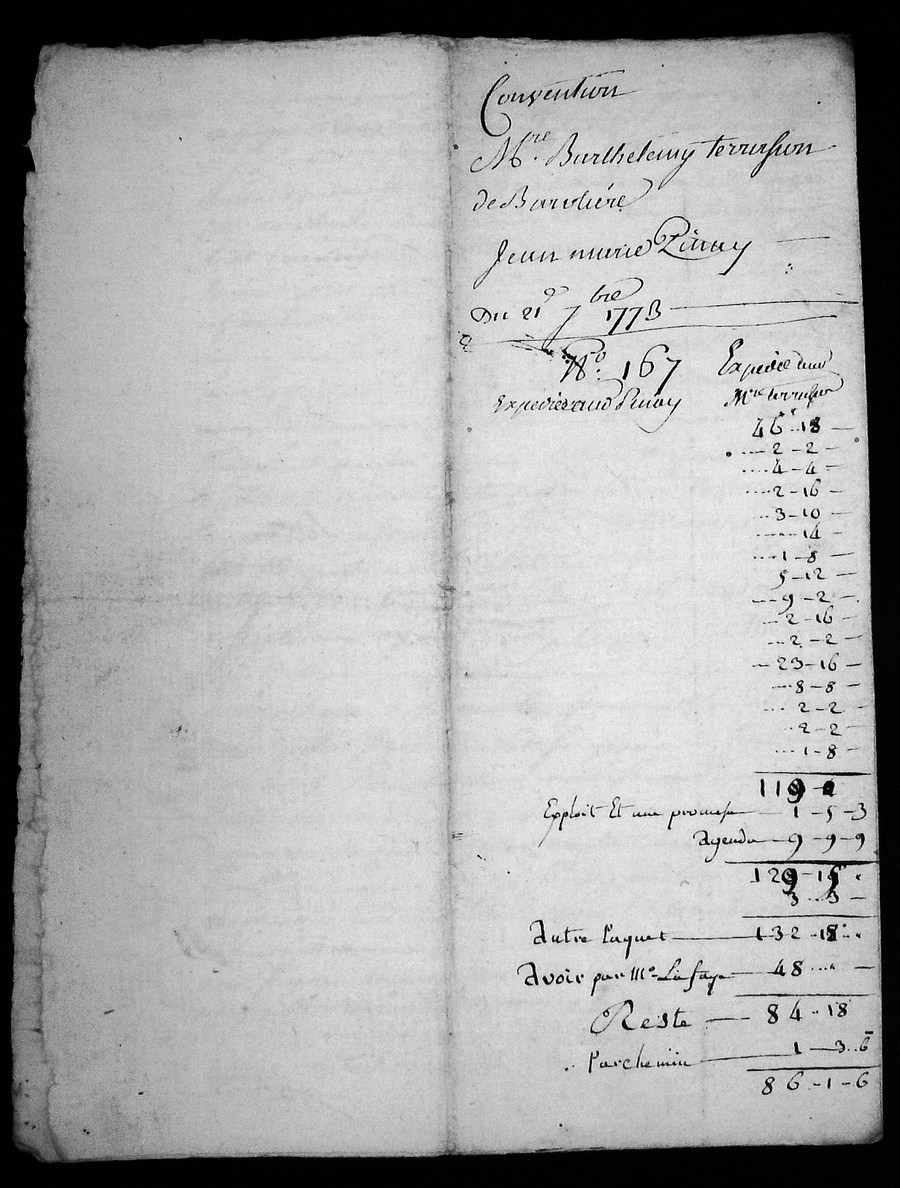 Convention
Mre. Barthelemy Terrasson
de Barolière
Jean marie Pinay
Du 21e 7bre 1773
No. 167
Expedié aud Pinay
Expedié aud
Mre terrasson
46-18-
2-2-
4-4-
2-16-
3-10-
14-
1-8-
5-12-
9-2-
2-16-
2-2-
23-16-
8-8-
2-2-
2-2-
1-8-
119-2
Exploit Et une promesse 1-5-3
Agenda 9-9-9
129-15
3-3-
Autre Paquet 132-18
Avoir par Me. Lafaye 48
Reste 84-18
Parchemin 1-3-6
86-1-6